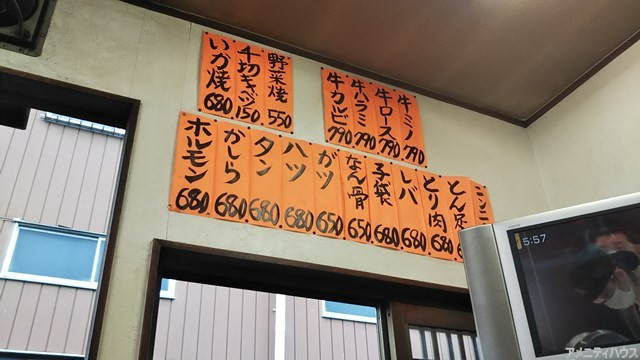 牛ミノ 790
牛ロース 790
牛ハラミ 790
牛カルビ 790
野菜焼 550
千切キャベツ 150
いか焼 680
とん足
とり肉 680
レバ 680
子袋 680
なん骨 650
ガツ 650
ハツ 680
タン 680
かしら 680
ホルモン 680
5:57
アメニティハウス